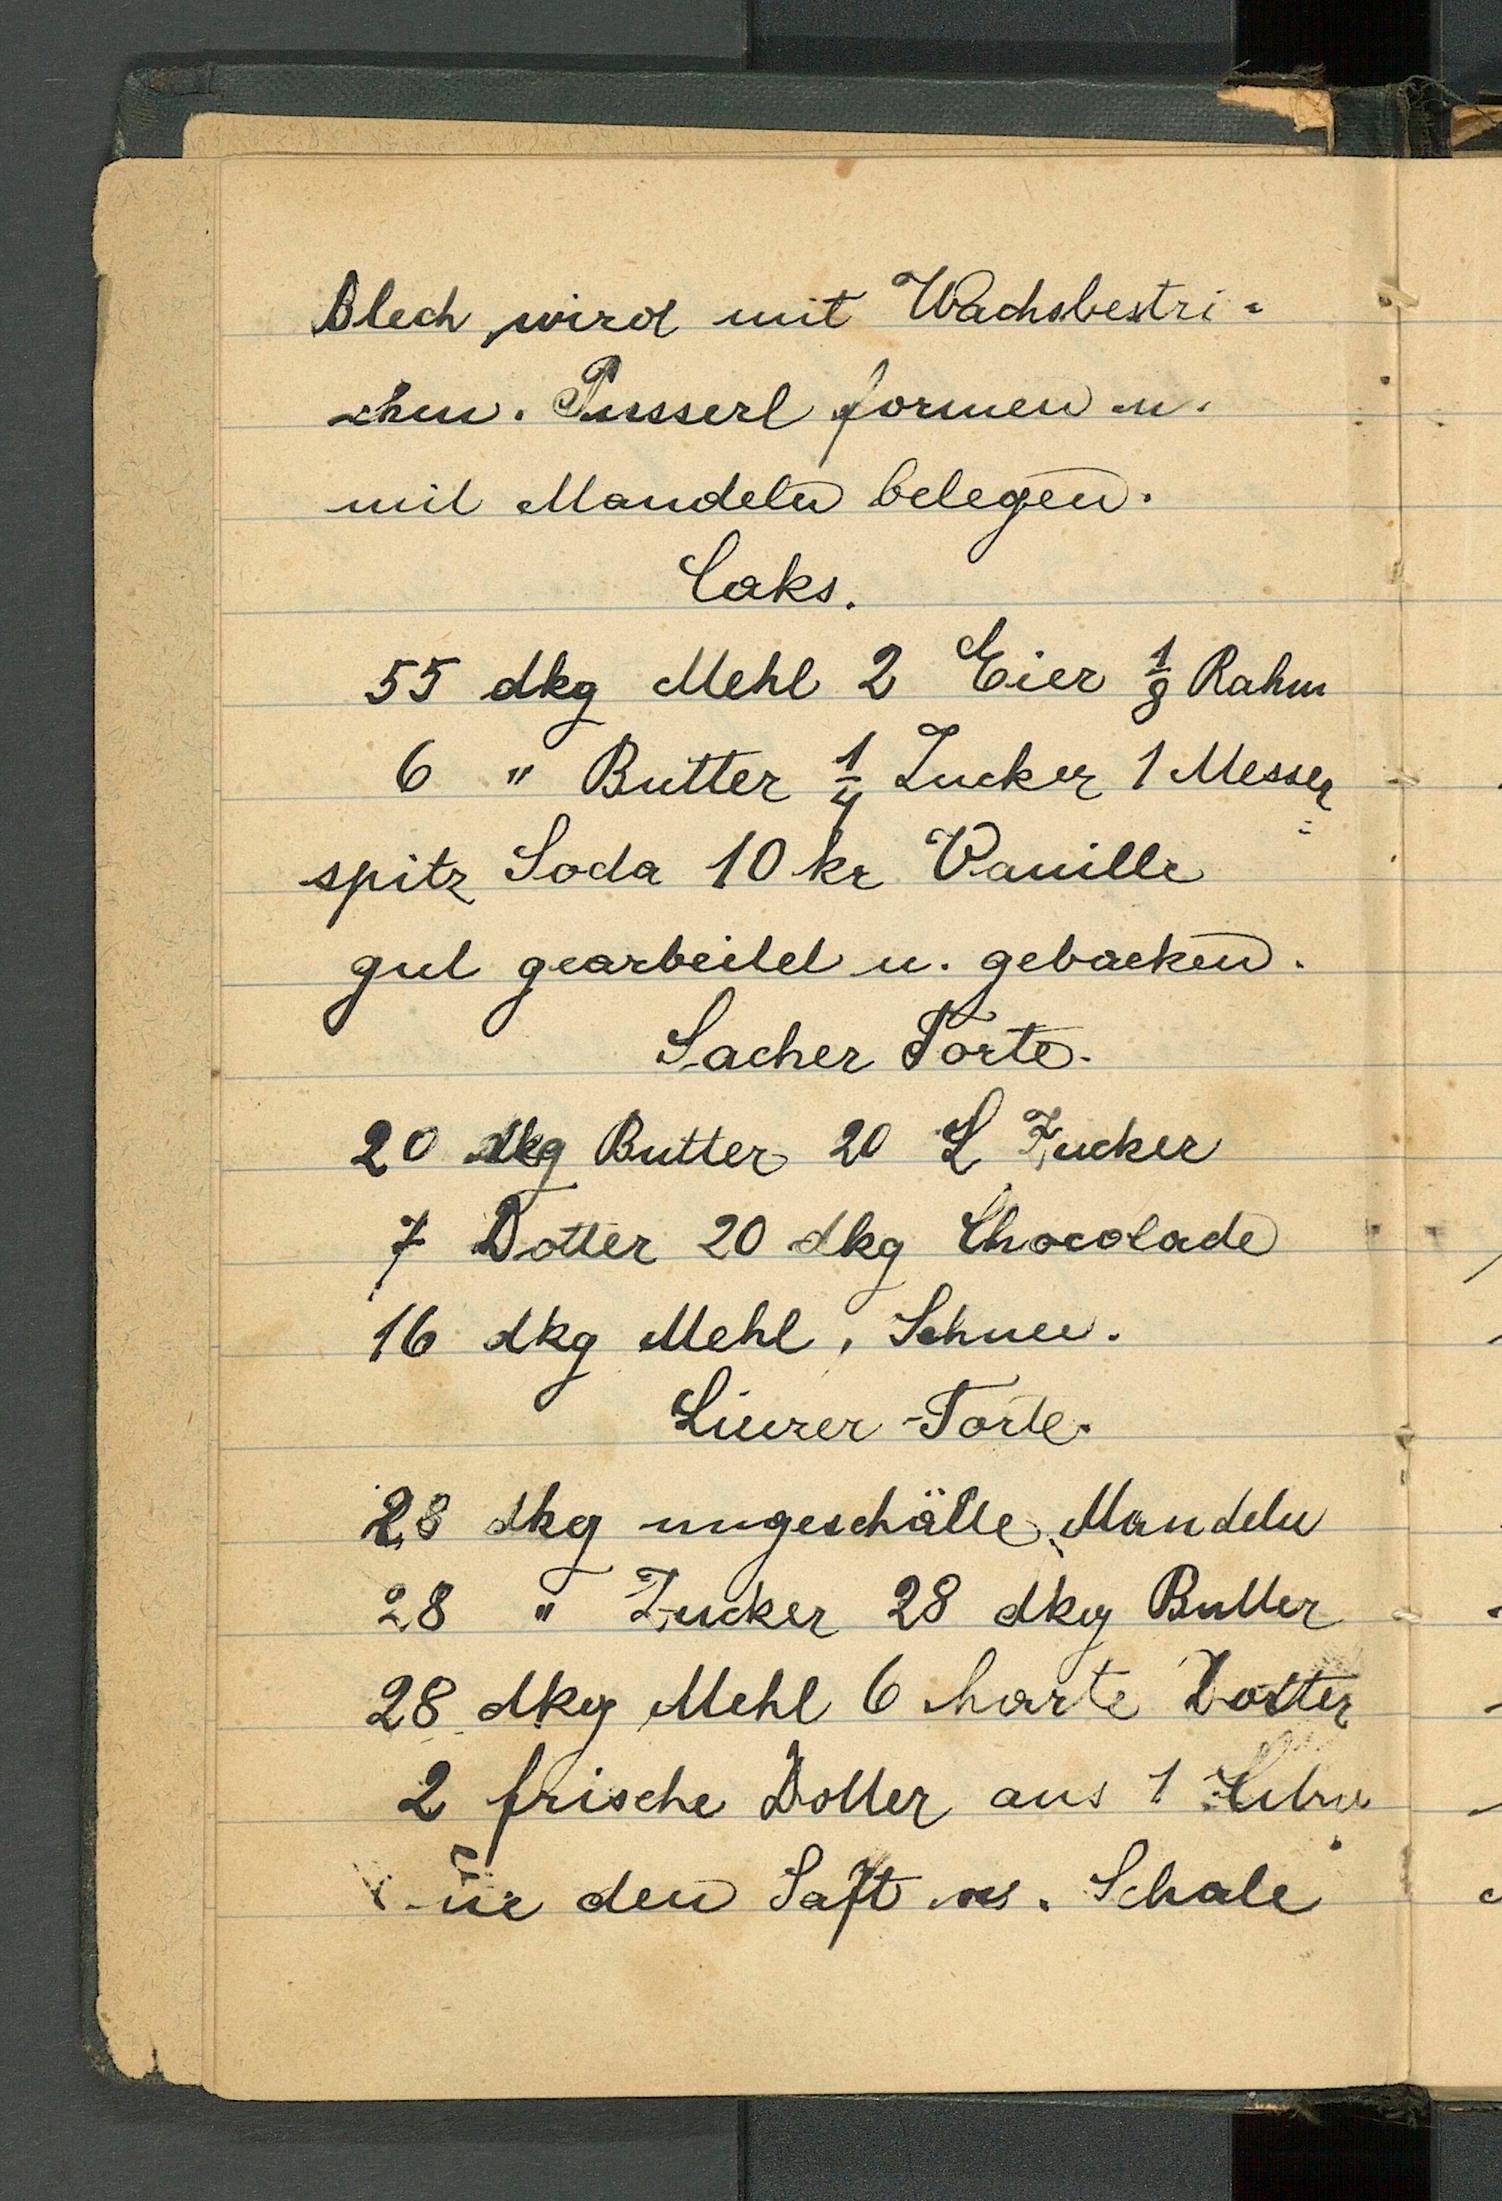 Blech wird mit Wachsbestri=
chen. Pusserl formen u.
mit Mandeln belegen.
Caks.
55 dkg Mehl 2 Eier 1/8 Rahm
6 " Butter 1/4 Zucker 1 Messer=
spitz Soda 10 kr Vanille
gut gearbeitet u. gebacken.
Sacher Torte.
20 dkg Butter 20 Zucker
7 Dotter 20 dkg Chocolade
16 dkg Mehl, Schnee.
Linzer-Torte.
28 dkg ungeschälte Mandeln
28 " Zucker 28 dkg Butter
28 dkg Mehl 6 harte Dotter
2 frische Dotter aus 1
den Saft u. Schale